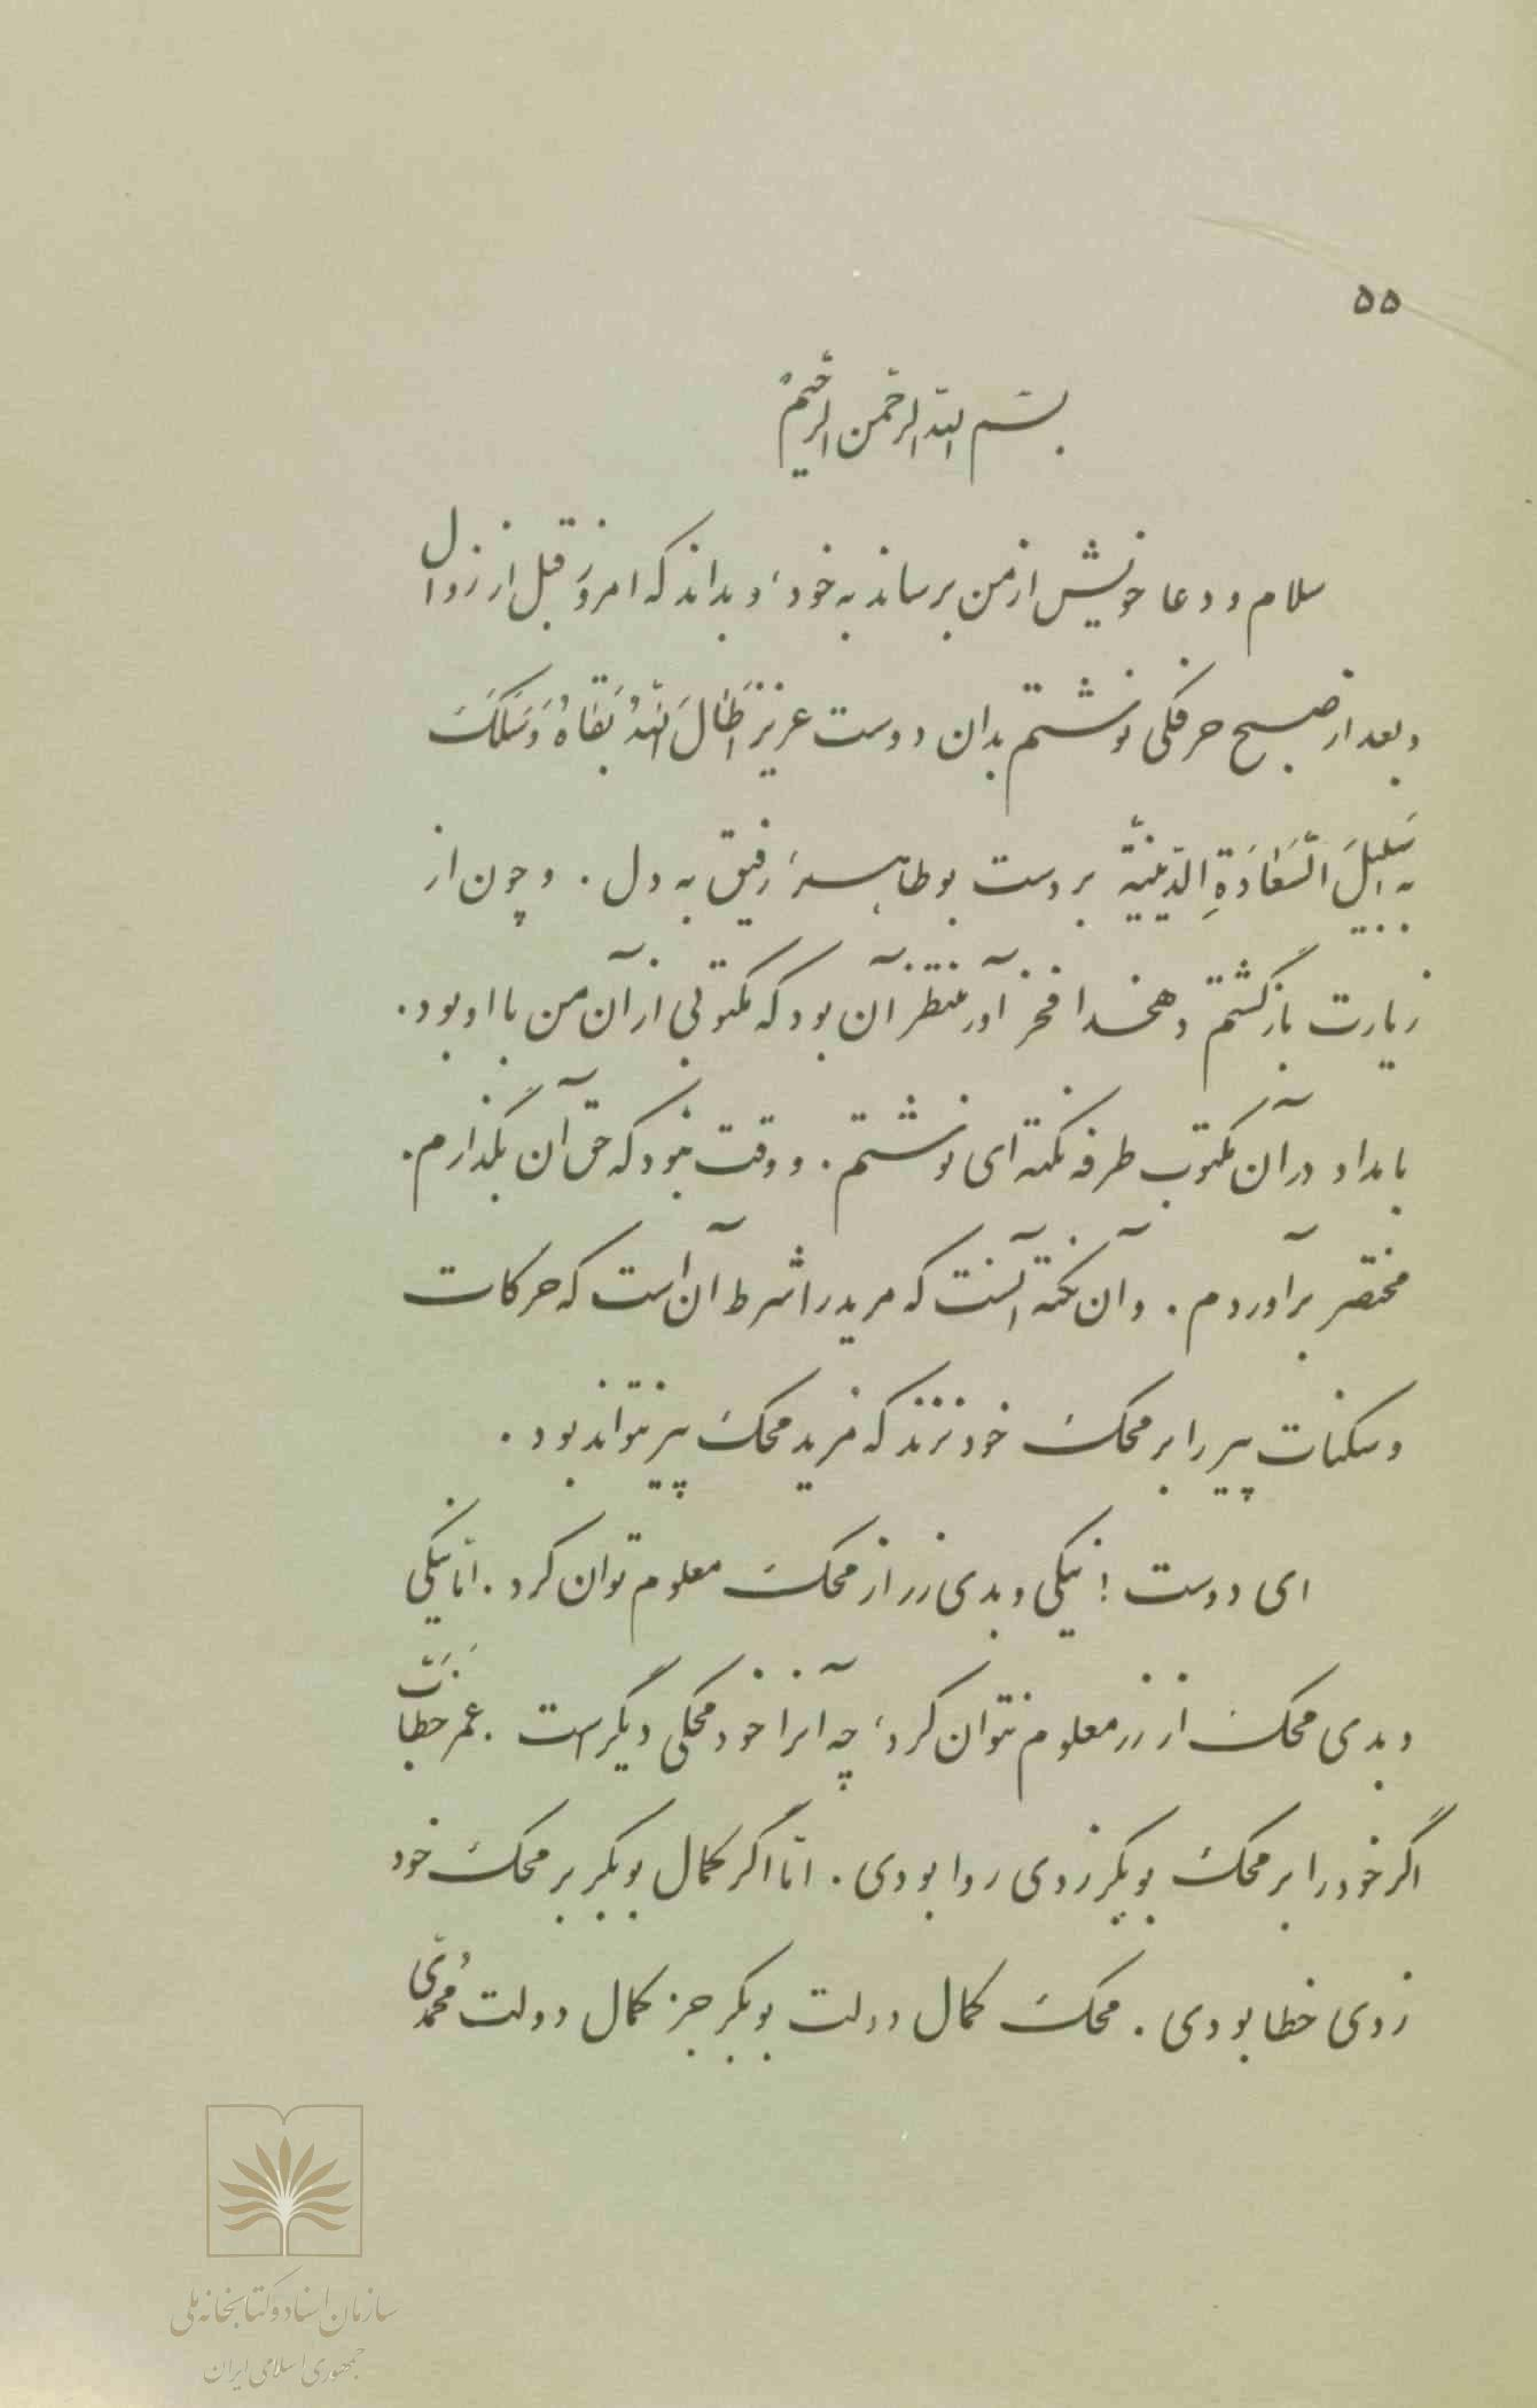 ۵۵
بسم الله الرحمن الرحیم
سلام و دعا خویش از من برساند به خود، و بداند که امروز قبل از زوال
و بعد از صبح حرفکی نوشتم بدان دوست عزیز اَطٰالَ اللّهُ بَقٰاهُ وَسَلَکَ
بِهِ سَبیلَ السَّعٰادَةِ الدّینیّة بر دست بوطاهر رفیق به دل. و چون از
زیارت بازگشتم دهخدا فخرآور منتظر آن بود که مکتوبی از آن من با او بود.
بامداد در آن مکتوب طرفه نکته‌ای نوشتم. و وقت نبود که حق آن بگذارم.
مختصر برآوردم. و آن نکته آنست که مرید را شرط آن است که حرکات
و سکنات پیر را بر محک خود نزند که مرید محک پیر نتواند بود.
ای دوست! نیکی و بدی زر از محک معلوم توان کرد. امّا نیکی
و بدی محک از زر معلوم نتوان کرد؛ چه آنرا خود محکی دیگر است. عمر خطّاب
اگر خود را بر محک بوبکر زدی روا بودی. امّا اگر کمال بوبکر بر محک خود
زدی خطا بودی. محک کمال دولت بوبکر جز کمال دولت مُحمّدی
سازمان اسناد و کتابخانه ملی
جمهوری اسلامی ایران